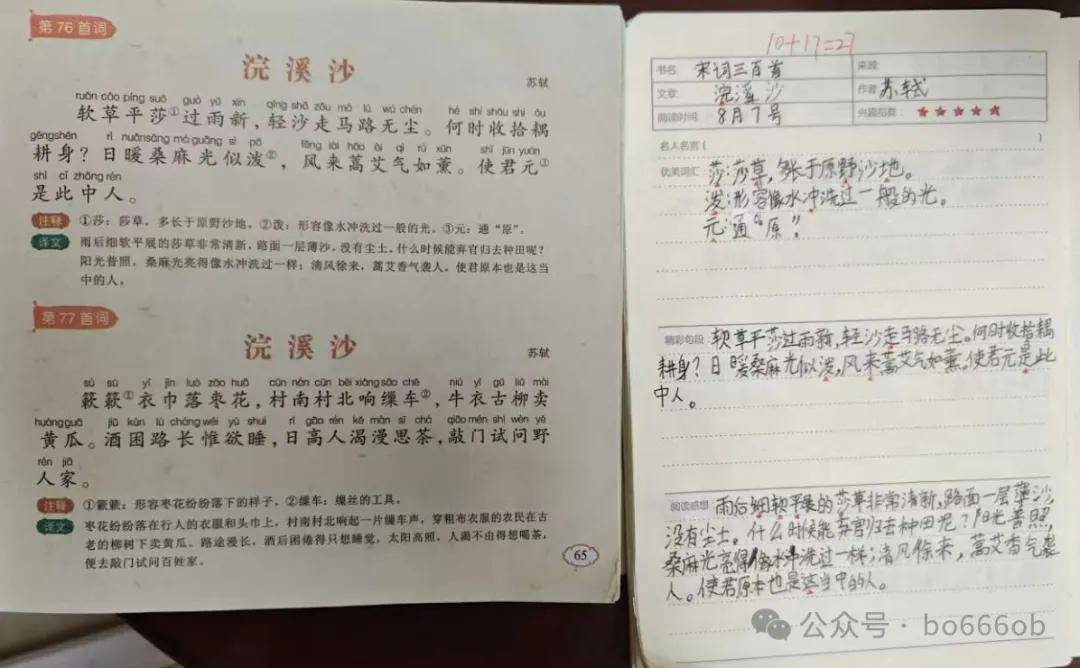 第76首词
浣溪沙
苏轼
ruǎn cǎo píng suō guò yǔ xīn qīng shā zǒu mǎ lù wú chén hé shí shōu shi ǒu
软草平莎①过雨新,轻沙走马路无尘。何时收拾耦
gēngshēn rì nuǎnsāng má guāng sì pō fēng lái hāo ài qì rú xūn shǐ jūn yuán
耕身?日暖桑麻光似泼②,风来蒿艾气如薰。使君元③
shì cǐ zhōng rén
是此中人。
注释 ①莎:莎草,多长于原野沙地。②泼:形容像水冲洗过一般的光。③元:通“原”。
译文 雨后细软平展的莎草非常清新,路面一层薄沙,没有尘土。什么时候能弃官归去种田呢?
阳光普照,桑麻光亮得像水冲洗过一样;清风徐来,蒿艾香气袭人。使君原本也是这当
中的人。
第77首词
浣溪沙
苏轼
sù sù yī jīn luò zǎo huā cūn nán cūn běi xiǎng sāo chē niú yī gǔ liǔ mài
簌簌①衣巾落枣花,村南村北响缫车②,牛衣古柳卖
huángguā jiǔ kùn lù cháng wéi yù shuì rì gāo rén kě màn sī chá qiāo mén shì wèn yě
黄瓜。酒困路长惟欲睡,日高人渴漫思茶,敲门试问野
rén jiā
人家。
注释 ①簌簌:形容枣花纷纷落下的样子。②缫车:缫丝的工具。
译文 枣花纷纷落在行人的衣服和头巾上,村南村北响起一片缫车声,穿粗布衣服的农民在古
老的柳树下卖黄瓜。路途漫长,酒后困倦得只想睡觉,太阳高照,人渴不由得想喝茶,
便去敲门试问百姓家。
65
10+17=27
书名 宋词三百首 来源
文章 浣溪沙 作者 苏轼
阅读时间 8月7号 兴趣指数 ★★★★★
名人名言( )
优美词汇 莎莎草,多长于原野沙地。
泼:形容像水冲洗过一般的光。
元:通“原”
精彩句段 软草平莎过雨新,轻沙走马路无尘。何时收拾耦
耕身?日暖桑麻光似泼,风来蒿艾气如薰。使君元是此
中人。
阅读感想 雨后细软平展的莎草非常清新,路面一层薄沙
没有尘土。什么时候能弃官归去种田呢?阳光普照,
桑麻光亮得像水冲洗过一样;清风徐来,蒿艾香气袭
人。使君原本也是这当中的人。
公众号·bo666ob